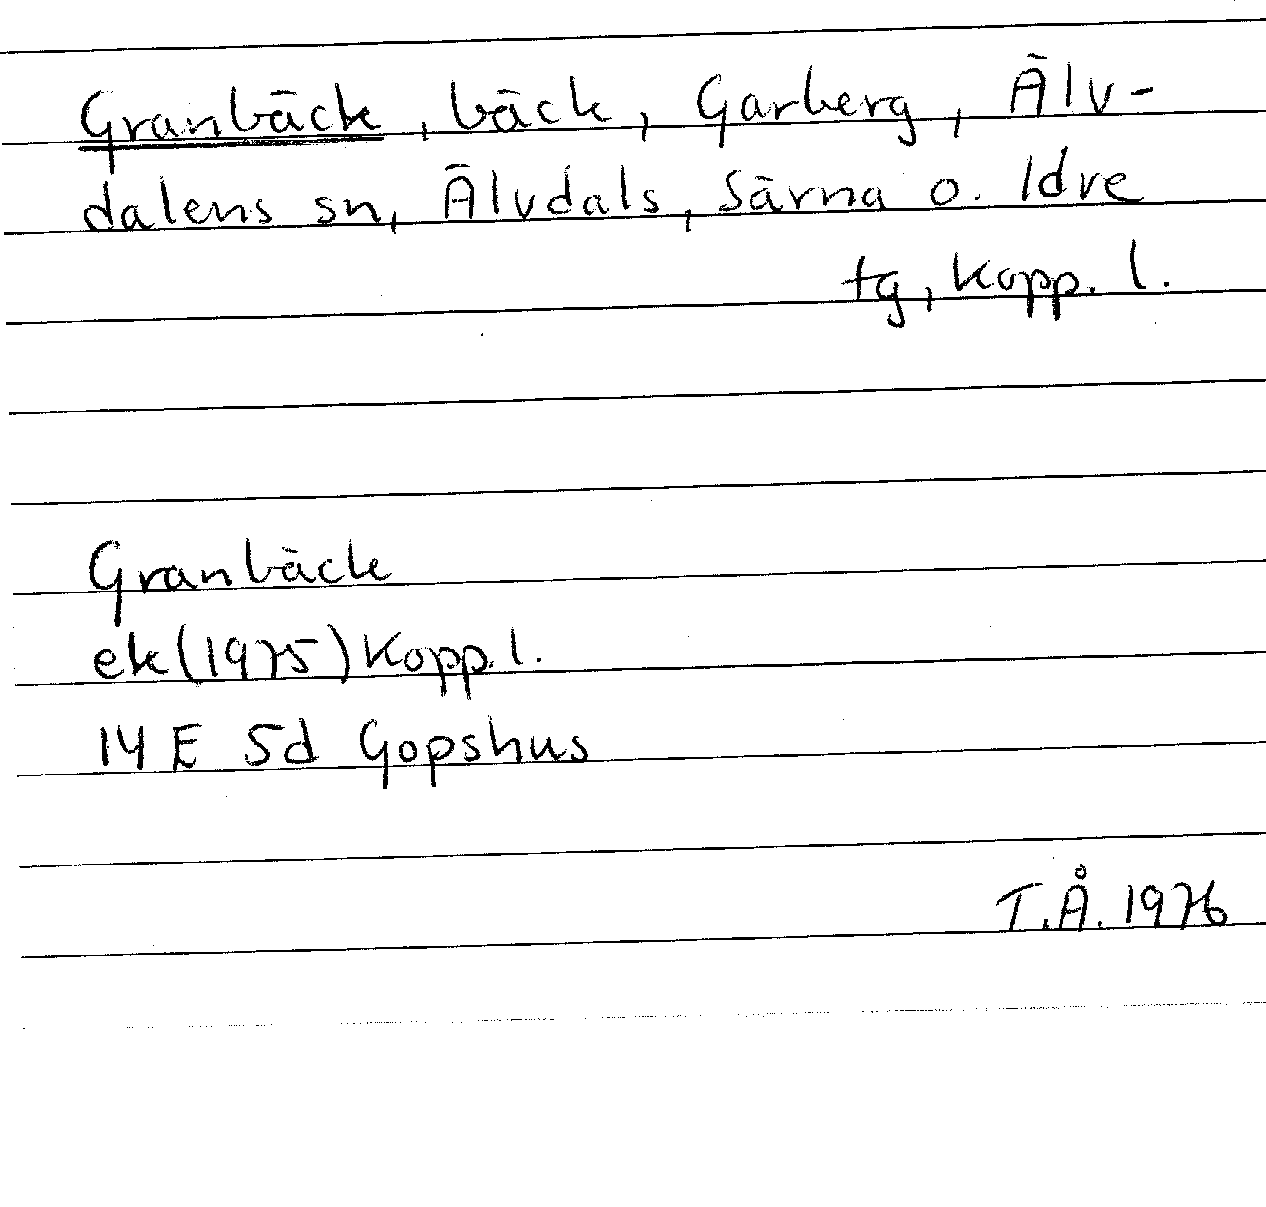 Granbäck, bäck, Garberg, Älv-
dalens sn, Älvdals, Särna o. Idre
tg, Kopp. l.
Granbäck
ek (1975) Kopp. l.
14 E 5d Gopshus
T.Å. 1976